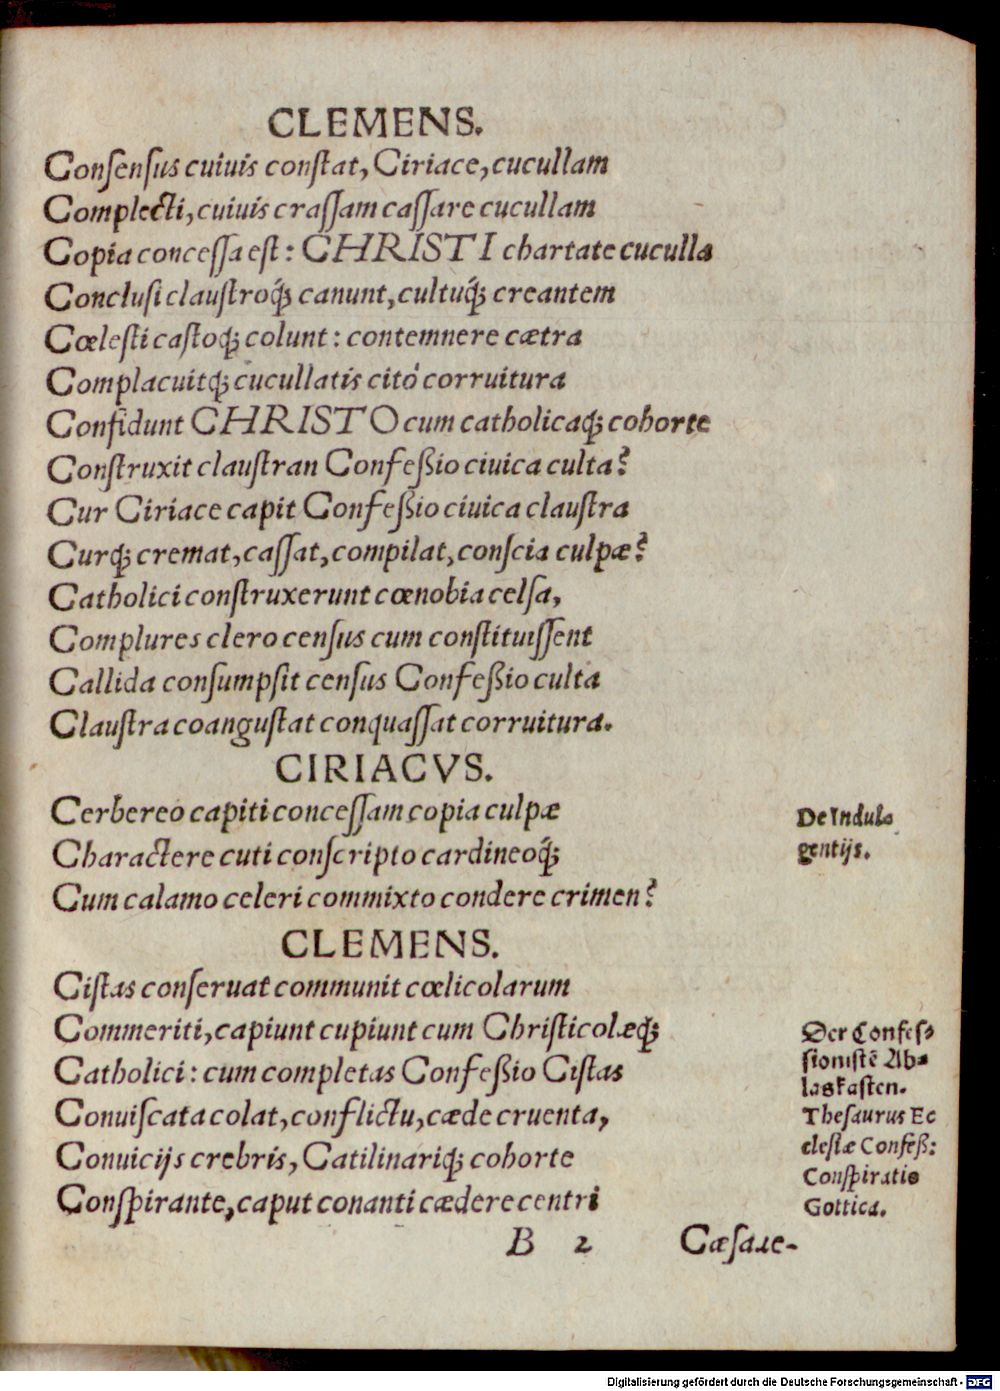 CLEMENS.
Conſenſus cuiuis conſtat, Ciriace, cucullam
Complecti, cuiuis craſſam caſſare cucullam
Copia conceſſa eſt: CHRISTI chartate cuculla
Concluſi clauſtroq́; canunt, cultuq́; creantem
Cœleſti caſtoq́; colunt: contemnere cætra
Complacuitq́; cucullatis citò corruitura
Confidunt CHRISTO cum catholicaq́; cohorte
Conſtruxit clauſtran Confeßio ciuica culta?
Cur Ciriace capit Confeßio ciuica clauſtra
Curq́; cremat, caſſat, compilat, conſcia culpæ?
Catholici conſtruxerunt cœnobia celſa,
Complures clero cenſus cum conſtituiſſent
Callida conſumpſit cenſus Confeßio culta
Clauſtra coanguſtat conquaſſat corruitura.
CIRIACVS.
Cerbereo capiti conceſſam copia culpæ
Charactere cuti conſcripto cardineoq́;
Cum calamo celeri commixto condere crimen?
De Indul⸗
gentijs.
CLEMENS.
Ciſtas conſeruat communit cœlicolarum
Commeriti, capiunt cupiunt cum Chriſticolæq́;
Catholici: cum completas Confeßio Ciſtas
Conuiſcata colat, conflictu, cæde cruenta,
Conuicijs crebris, Catilinariq́; cohorte
Conſpirante, caput conanti cædere centri
Der Confeſ⸗
ſioniſtē Ab⸗
laskaſten.
Theſaurus Ec
cleſiæ Confeß:
Conſpiratio
Gottica.
B 2 Cæſare-
Digitalisierung gefördert durch die Deutsche Forschungsgemeinschaft - DFG